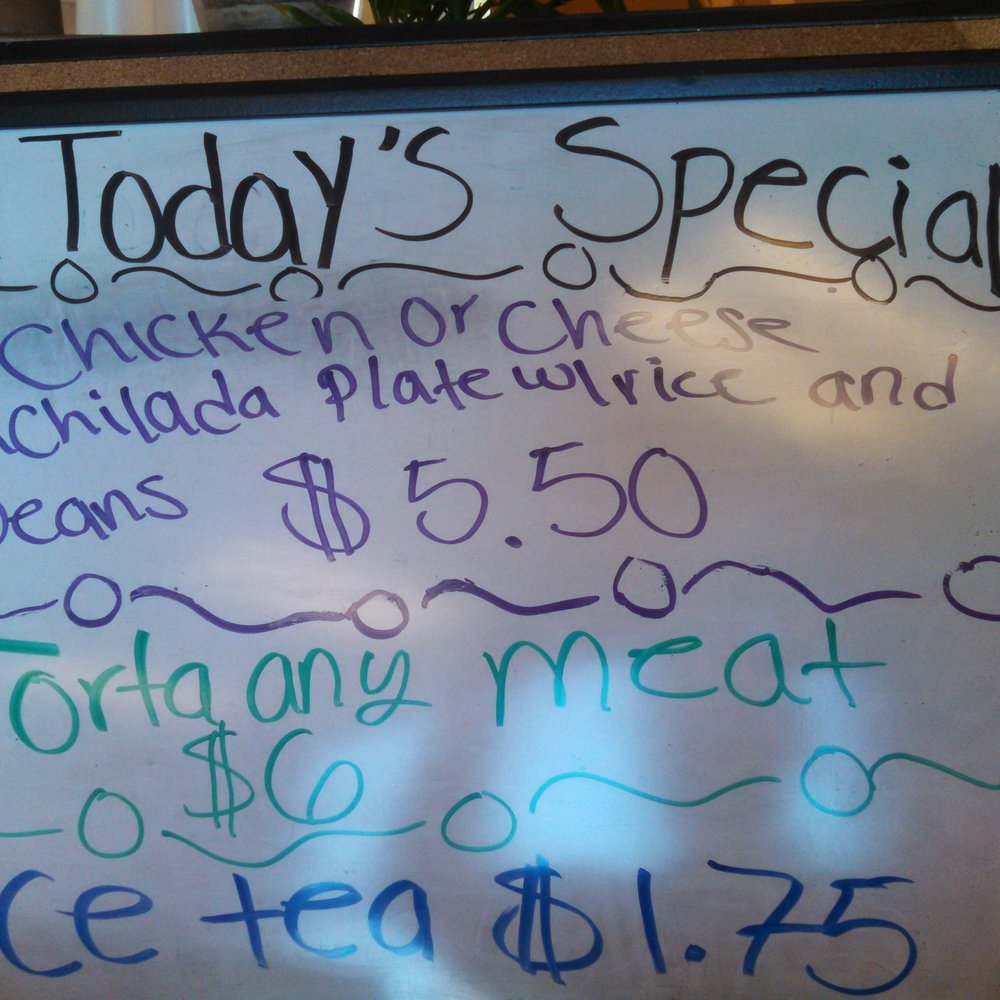 Today's Special
Chicken or Cheese
nchilada Plate w/rice and
beans $5.50
Torta any meat
$6
ce tea $1.75